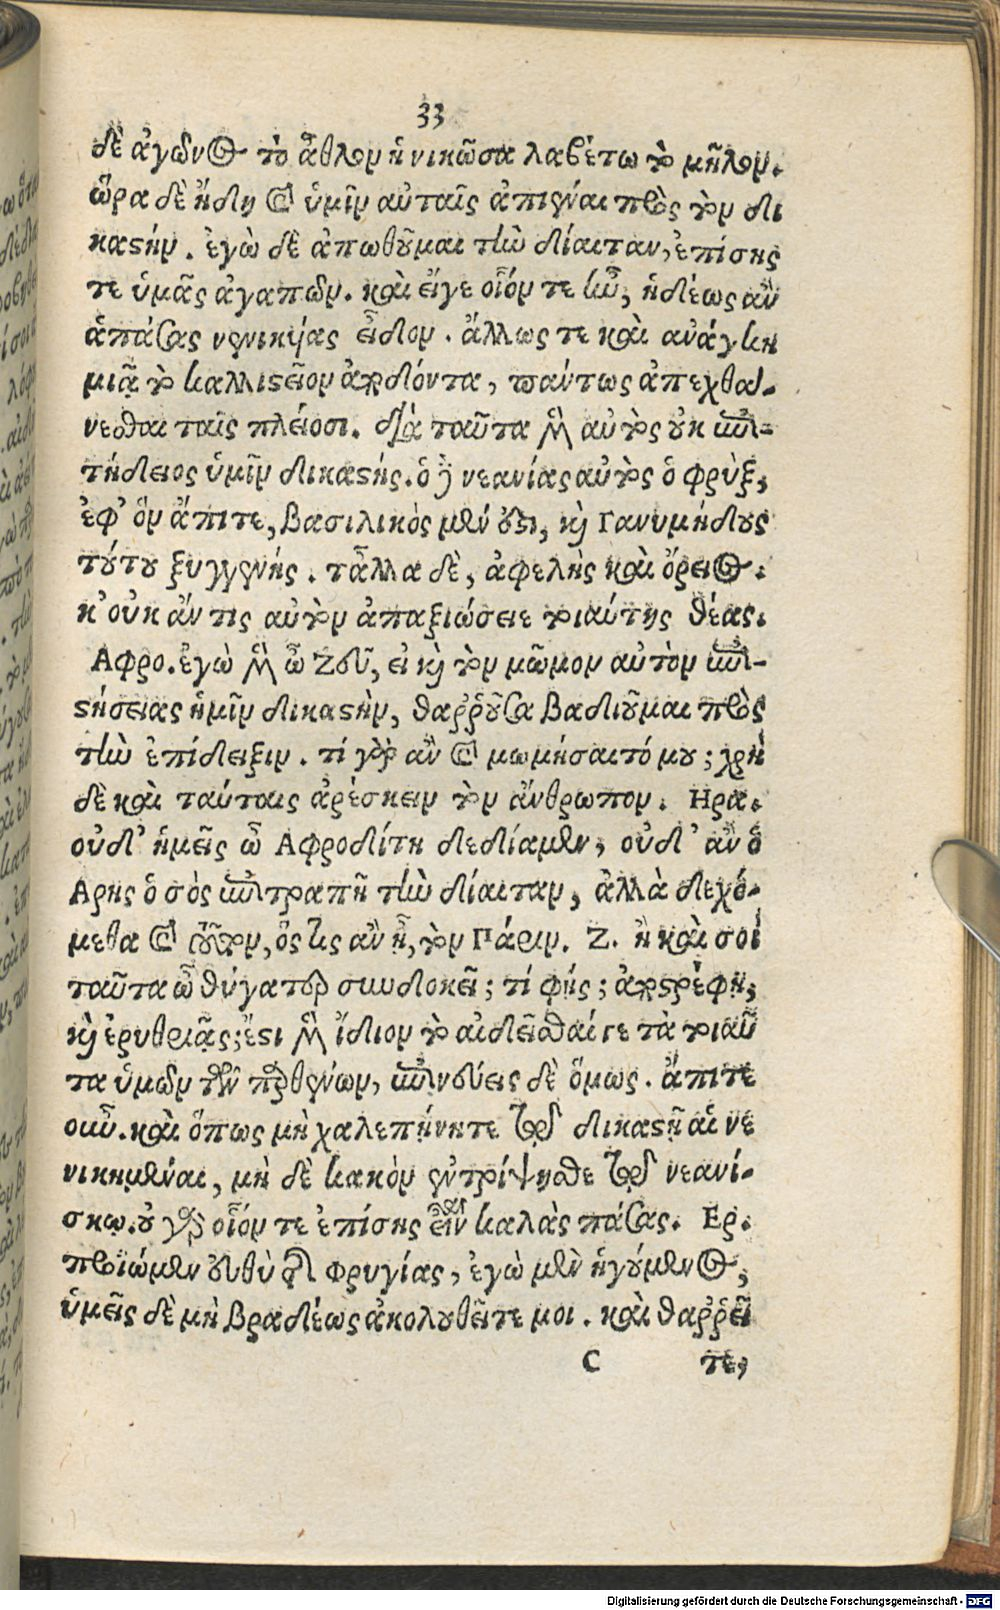 33
δὲ ἀγῶνος τὸ ἆθλον ἡ νικῶσα λαβέτω τὸ μῆλον.
ὥρα δὲ ἤδη καὶ ὑμῖν αὐταῖς ἀπιέναι πρὸς τὸν δι
καστήν. ἐγὼ δὲ ἀπωθοῦμαι τὴν δίαιταν, ἐπίσης
τε ὑμᾶς ἀγαπῶν. καὶ εἴγε οἷόν τε ἦν, ἡδέως ἂν
ἁπάσας νενικηκυίας εἶδον. ἄλλως τε καὶ ἀνάγκη
μιᾷ τὸ καλλιστεῖον ἀποδόντα, πάντως ἀπεχθά-
νεσθαι ταῖς πλείοσι. διὰ ταῦτα μὲν αὐτὸς οὐκ ἐπι-
τήδειος ὑμῖν δικαστής. ὁ δὲ νεανίας αὐτὸς ὁ φρὺξ,
ἐφ' ὃν ἄπιτε, βασιλικὸς μέν ἐστι, καὶ Γανυμήδους
τούτου ξυγγενής. τἆλλα δὲ, ἀφελὴς καὶ ὄρειος.
κ' οὐκ ἄν τις αὐτὸν ἀπαξιώσειε τοιαύτης θέας.
Αφρο. ἐγὼ μὲν ὦ Ζεῦ, εἰ καὶ τὸν μῶμον αὐτὸν ἐπι-
στήσειας ἡμῖν δικαστὴν, θαῤῥοῦσα βαδιοῦμαι πρὸς
τὴν ἐπίδειξιν. τί γὰρ ἂν καὶ μωμήσαιτό μου; χρὴ
δὲ καὶ ταύταις ἀρέσκειν τὸν ἄνθρωπον. Ηρα.
οὐδ' ἡμεῖς ὦ Αφροδίτη δεδίαμεν, οὐδ' ἂν ὁ
Αρης ὁ σὸς ἐπιτραπῇ τὴν δίαιταν, ἀλλὰ δεχό-
μεθα καὶ τοῦτον, ὅστις ἂν ᾖ, τὸν Πάριν. Ζ. ἢ καὶ σοὶ
ταῦτα ὦ θύγατερ συνδοκεῖ; τί φῄς; ἀποστρέφῃ,
καὶ ἐρυθριᾷς; ἔστι μὲν ἴδιον τὸ αἰδεῖσθαί γε τὰ τοιαῦ
τα ὑμῶν τῶν παρθένων, ἐπινεύεις δὲ ὅμως. ἄπιτε
οὖν. καὶ ὅπως μὴ χαλεπήνητε τῷ δικαστῇ αἱ νε
νικημέναι, μὴ δὲ κακὸν ἐντρίψησθε τῷ νεανί-
σκῳ. οὐ γὰρ οἷόν τε ἐπίσης εἶναι καλὰς πάσας. Ερ.
προϊώμεν εὐθὺ τῆς Φρυγίας, ἐγὼ μὲν ἡγούμενος,
ὑμεῖς δὲ μὴ βραδέως ἀκολουθεῖτε μοι. καὶ θαῤῥεῖ
C τε,
Digitalisierung gefördert durch die Deutsche Forschungsgemeinschaft - DFG